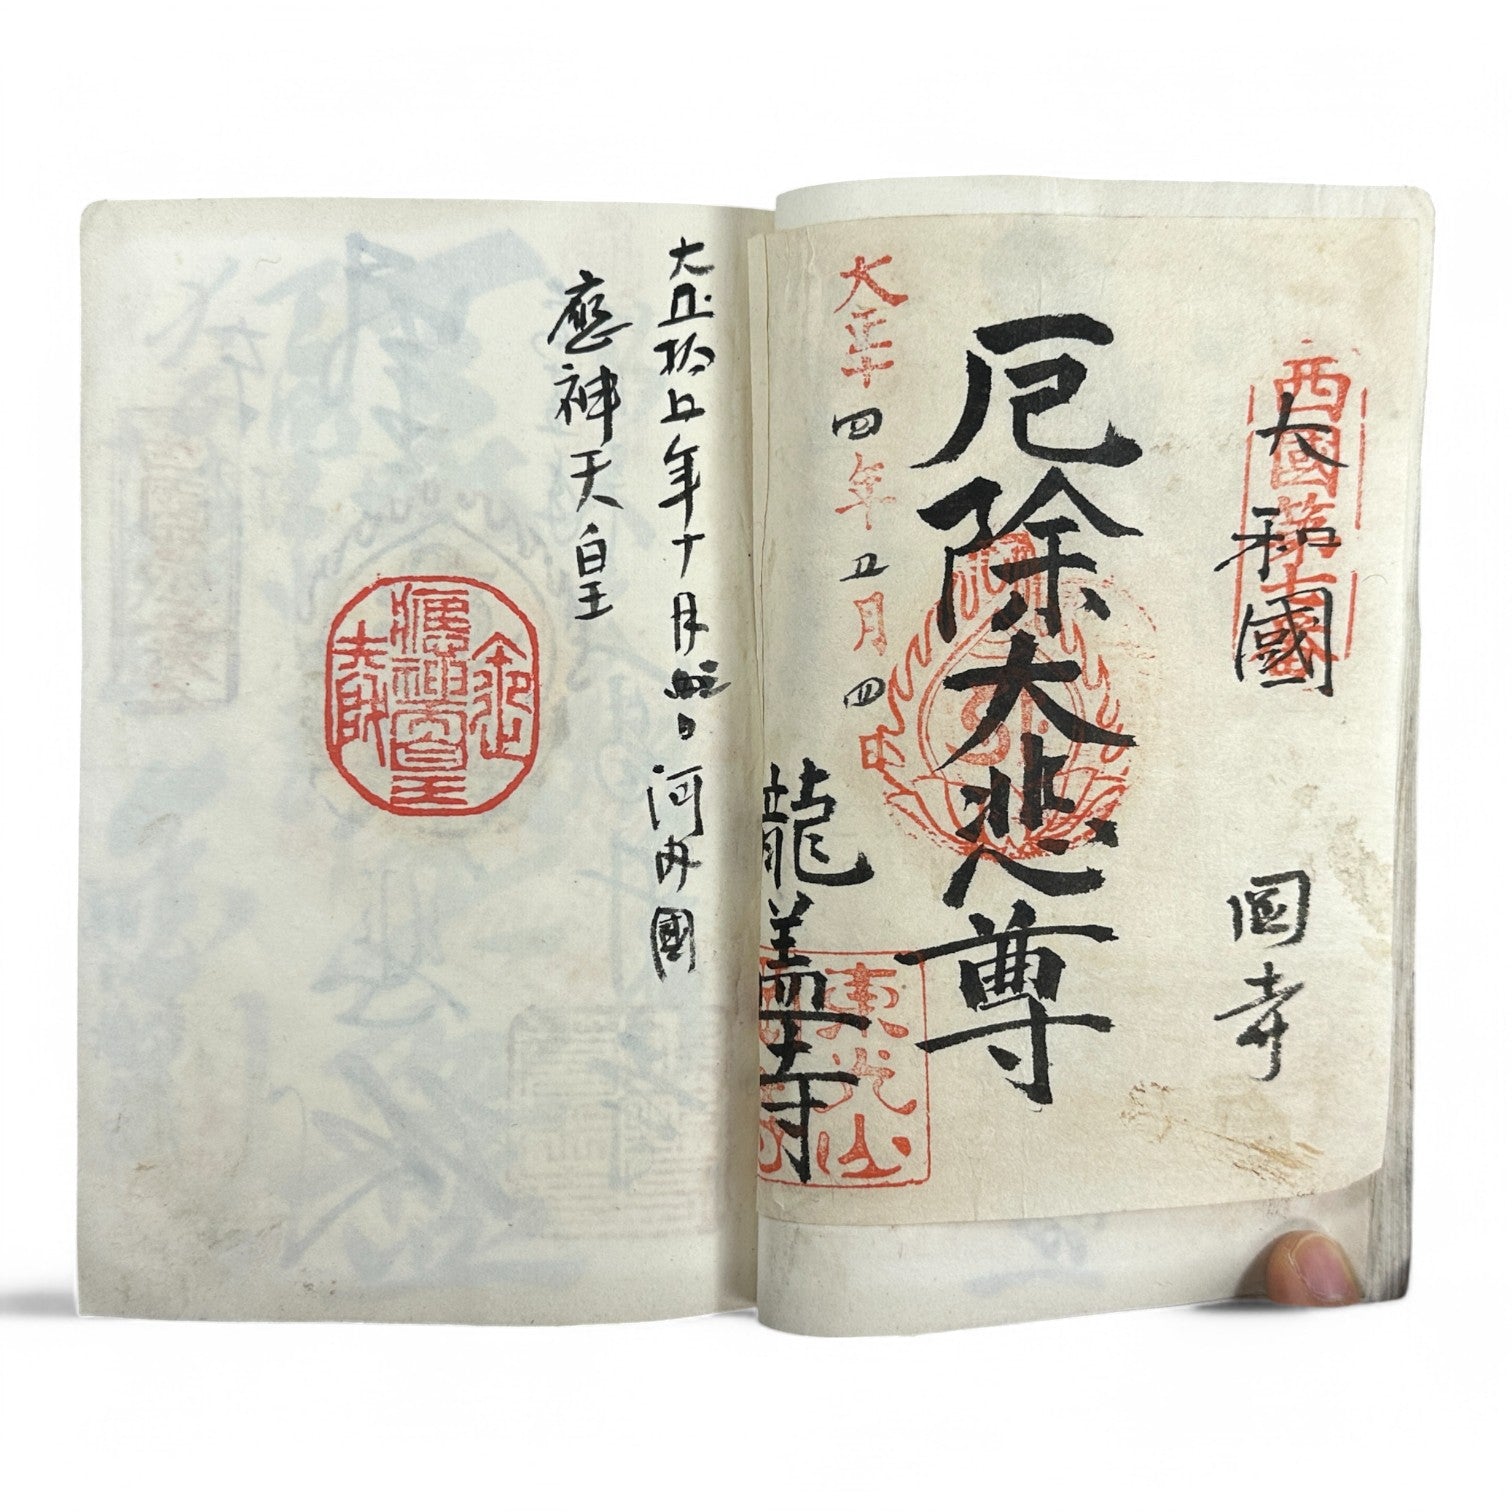 西國第七番
大和國
岡寺
厄除大悲尊
大正十四年五月四日
龍蓋寺
東光山
大正拾五年十月 河内國
應神天皇